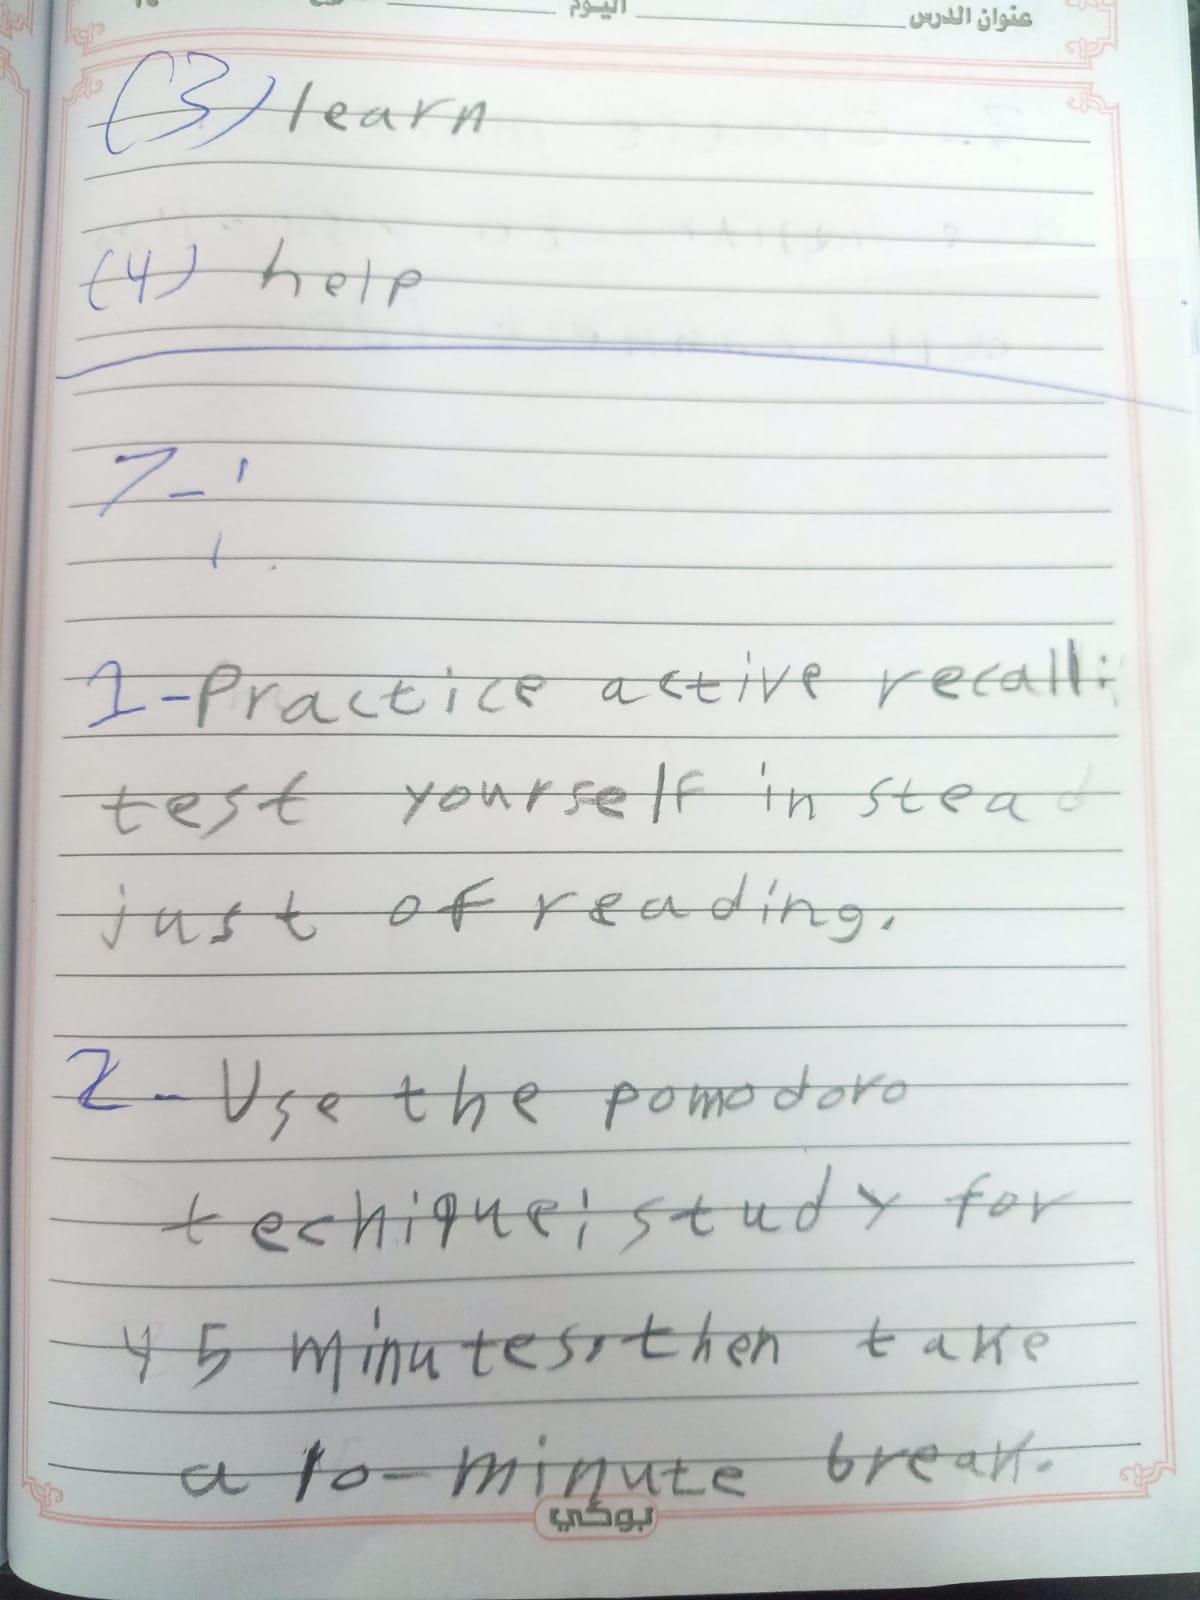 عنوان الدرس اليوم
(3) learn
(4) help
7-
1-Practice active recall:
test yourself in stead
just of reading.
2- Use the pomodoro
techique; study for
45 minutes, then take
a 10-minute break.
بوكي